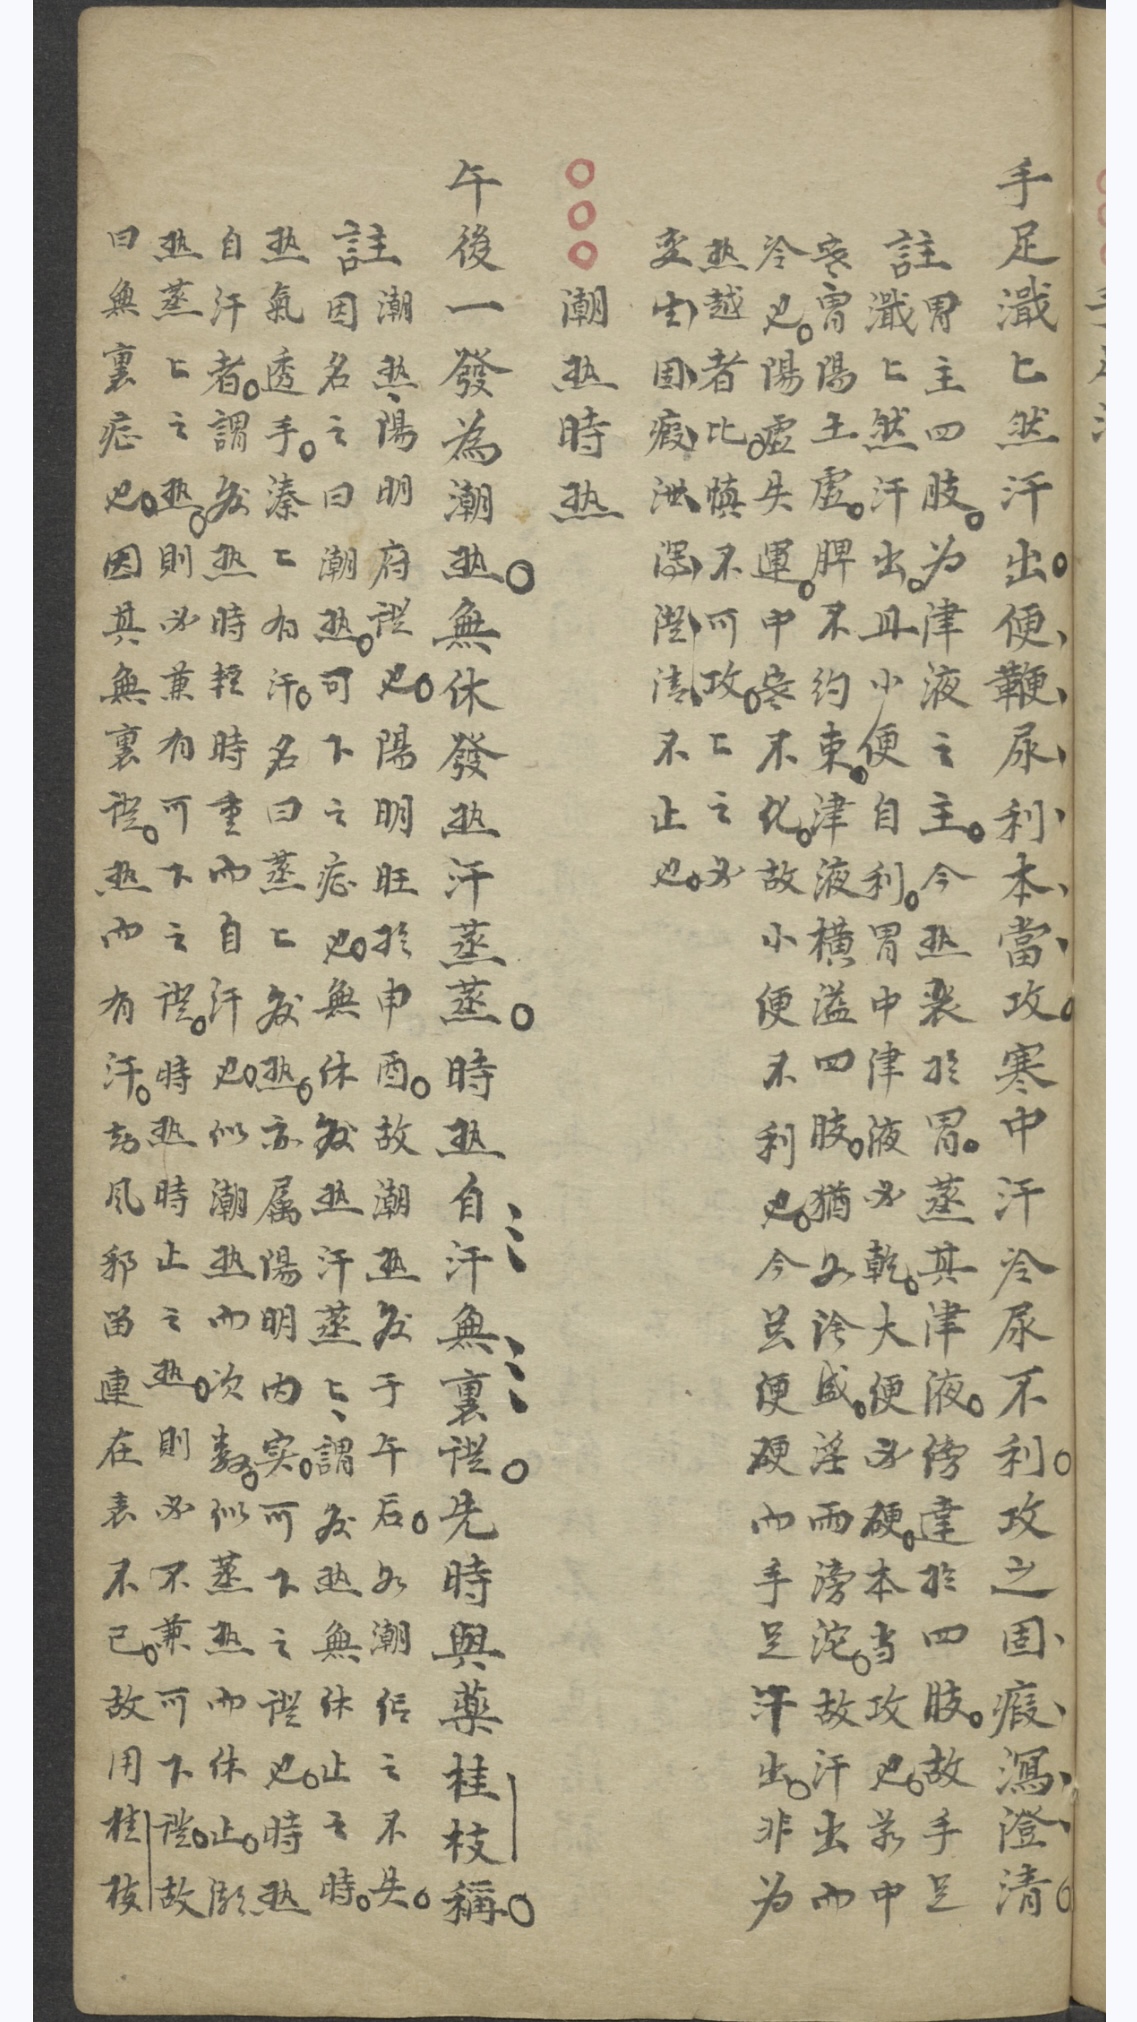 手足濈〻然汗出便鞭尿利本當攻寒中汗冷尿不利攻之固瘕瀉澄清
註胃主四肢为津液之主今热聚於胃蒸其津液傍達於四肢故手足
濈〻然汗出且小便自利胃中津液必乾大便必硬本当攻也若中
寒胃陽土虚脾不約束津液橫溢四肢猶如陰盛淫雨滂沱故汗出而
冷也陽虚失運中寒不化故小便不利也今虽便硬而手足汗出非为
热越者比慎不可攻〻之必
变生固瘕泄瀉澄清不止也
潮热時热
午後一發為潮热無休發热汗蒸蒸時热自汗無裏證先時與藥桂枝稱
註潮热陽明府證也陽明旺於申酉故潮热发于午后如潮信之不失
因名之曰潮热可下之症也無休发热汗蒸〻謂发热無休止之時
热氣透手溱〻有汗名曰蒸〻发热亦属陽明内实可下之證也時热
自汗者謂发热時輕時重而自汗也似潮热而次数似蒸热而休止
热蒸〻之热則必兼有可下之證時热時止之热則必不兼可下證故
曰無裏症也因其無裏證热而有汗故风邪畄連在表不已故用桂枝